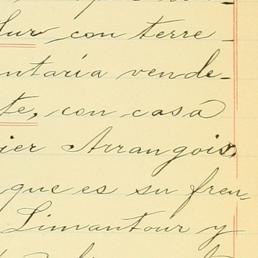 Sur con terre-
ntaria vende-
te, con casa
ier Arrangois,
que es su fren-
Limantour y